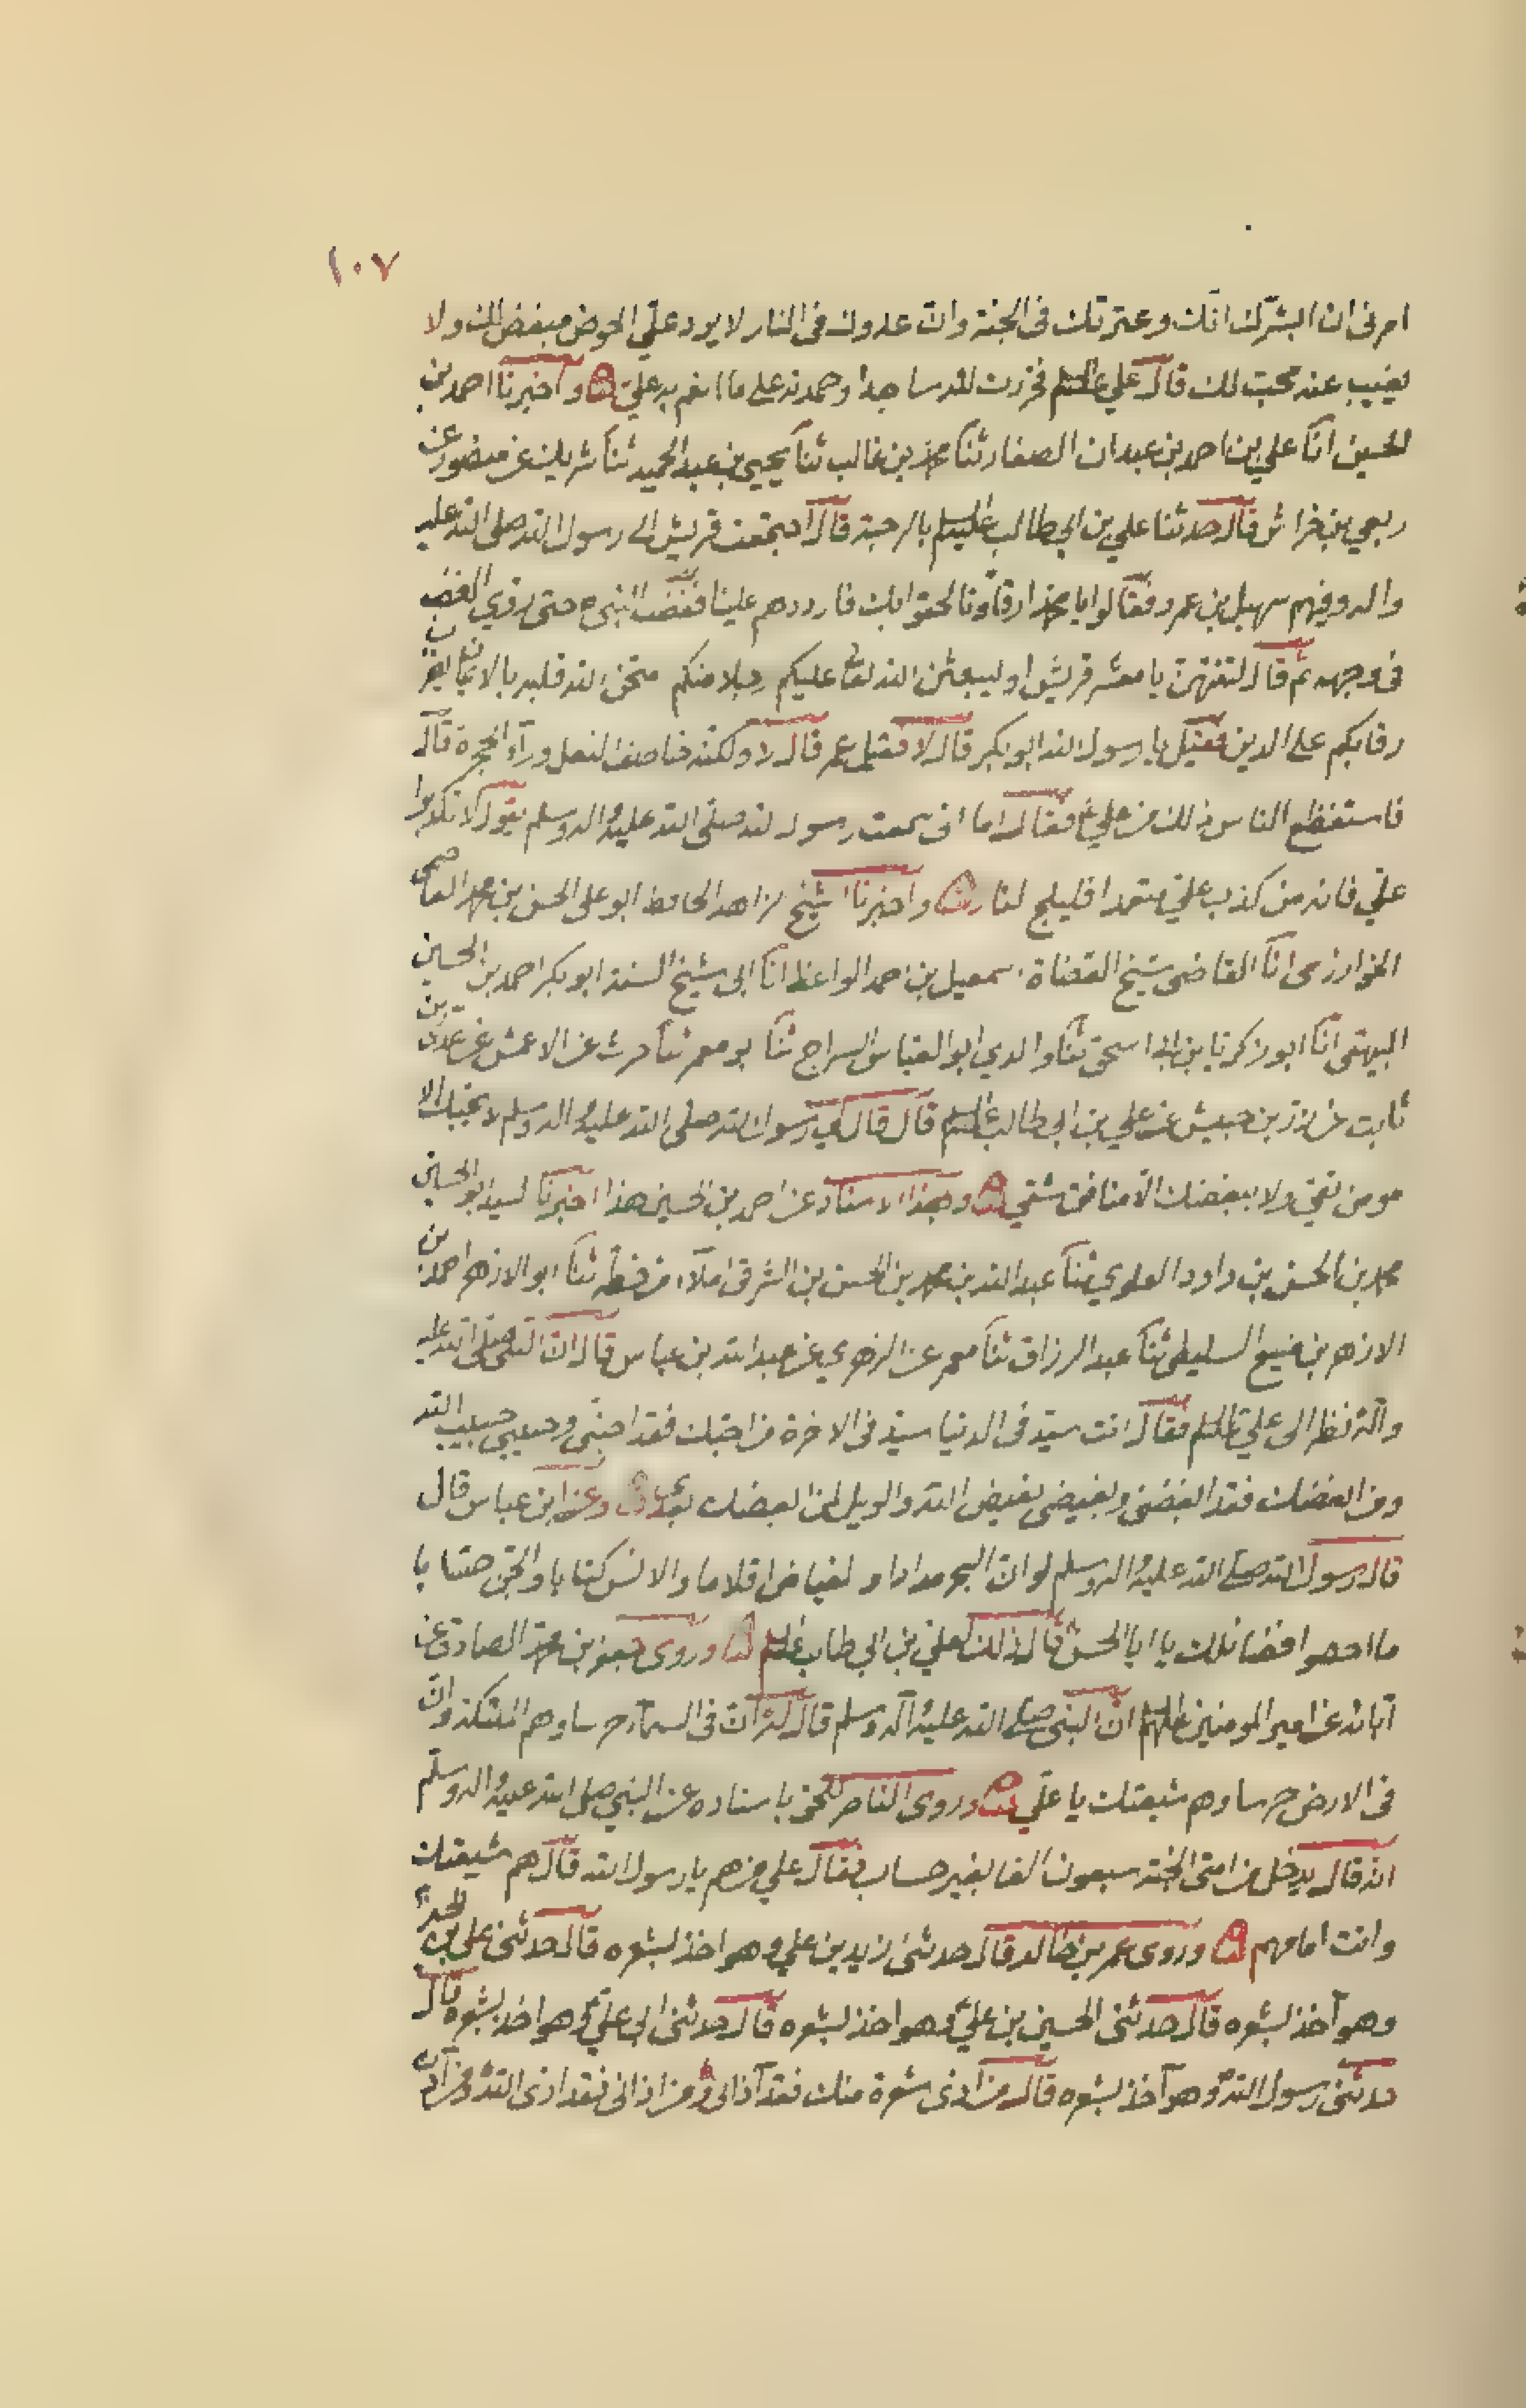 ١٠٧
امرنى ان ابشرك انّك وعترتك فى الجنة وانّ عدوك فى النار لا يرد علىّ الحوض مبغض لك ولا
يغيب عنه محب لك قال علي عليه السلم فخررت لله ساجدا وحمدته على ما انعم به عليّ واخبرنا احمد بن
الحسين انا علي بن احمد بن عبدان الصفار ثنا محمد بن غالب ثنا يحيى بن عبد الحميد ثنا شريك عن منصور عن
ربعي بن خراش قال حدثنا علي بن ابي طالب عليه السلم بالرحبة قال اجتمعت قريش الى رسول الله صلى الله عليه
واله وفيهم سهيل بن عمرو فقالوا يا محمد ارقاؤنا لحقوا بك فارددهم علينا فغضب النبي ص حتى رؤي الغضب
فى وجهه ثم قال لتنتهنّ يا معشر قريش او ليبعثن الله تعالى عليكم رجلا منكم امتحن الله قلبه بالايمان يضرب
رقابكم على الدين فقيل يا رسول الله ابو بكر قال لا فقيل عمر قال لا ولكنه خاصف النعل وراء الحجرة قال
فاستفظع الناس ذلك من علي ع فقال اما انى سمعت رسول الله صلى الله عليه واله وسلم يقول لا تكذبوا
عليّ فانه من كذب عليّ متعمدا فليلج النار واخبرنا الشيخ الزاهد الحافظ ابو على الحسن بن محمد العاصمى
الخوارزمى انا القاضى شيخ القضاة اسمعيل بن احمد الواعظ انا ابى شيخ السنة ابو بكر احمد بن الحسين
البيهقى انا ابو زكريا بن ابى اسحق ثنا والدي ابو العباس السراج ثنا ابو معمر ثنا حرث عن الاعمش عن عدى بن
ثابت عن زر بن حبيش عن علي بن ابي طالب عليه السلم قال قال لي رسول الله صلى الله عليه واله وسلم لا يحبك الا
مومن تقيّ ولا يبغضك الا منافق شقي وبهذا الاسناد عن احمد بن الحسين هذا اخبرنا السيد ابو الحسين
محمد بن الحسن بن داود العلوي ثنا عبد الله بن محمد بن الحسن بن الشرقى املاء من حفظه ثنا ابو الازهر احمد بن
الازهر بن منيع السليطى ثنا عبد الرزاق ثنا معمر عن الزهري عن عبد الله بن عباس قال انّ النبي صلى الله عليه
وآله نظر الى علي عليه السلم فقال انت سيّد فى الدنيا سيّد فى الاخرة من احبّك فقد احبنّى وحبيبى حبيب الله
ومن ابغضك فقد ابغضنى وبغيضى بغيض الله والويل لمن ابغضك بعدي وعن ابن عباس قال
قال رسول الله صلى الله عليه واله وسلم لو انّ البحر مدادا والغياض اقلاما والانس كتابا والجن حسابا
ما احصوا فضائلك يا ابا الحسن قال ذلك لعلي بن ابي طالب عليه السلم وروى جعفر بن محمد الصادق عن
آبائه عن امير المومنين عليهم السلم انّ النبي صلى الله عليه واله وسلم قال لله انّ فى السماء حرسا وهم الملئكة وانّ
فى الارض حرسا وهم شيعتك يا عليّ وروى الناصر للحق باسناده عن النبي صلى الله عليه واله وسلم
انه قال يدخل من امتى الجنة سبعون الفا بغير حساب فقال علي من هم يا رسول الله قال هم شيعتك
وانت امامهم وروى عمر بن خالد قال حدثنى زيد بن علي وهو اخذ بشعره قال حدثنى على بن الحسين
وهو آخذ بشعره قال حدثنى الحسين بن علي وهو اخذ بشعره قال حدثنى ابى علي وهو اخذ بشعره قال
حدثنى رسول الله ص وهو آخذ بشعره قال من اذى شعرة منك فقد آذانى ومن اذانى فقد اذى الله ومن آذى